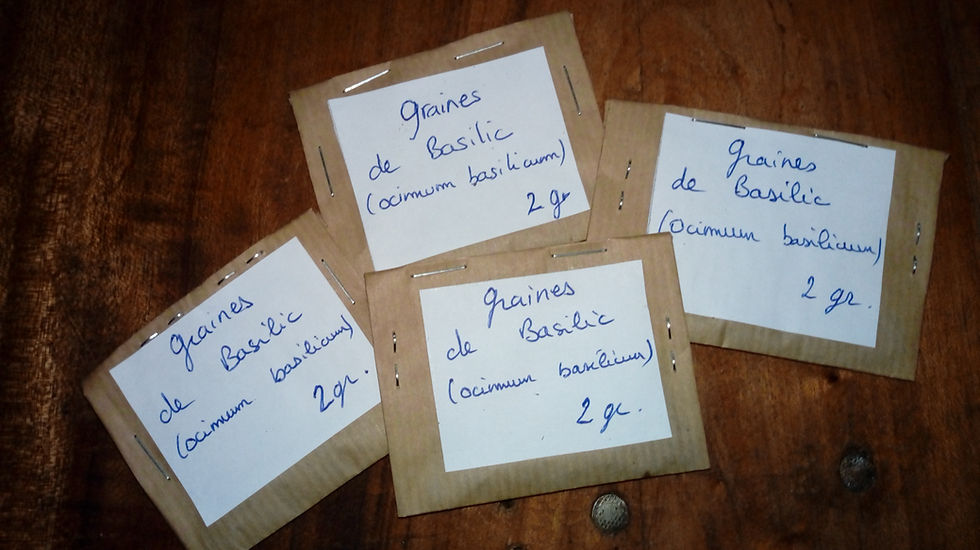 graines
de Basilic
(ocimum basilicum)
2 gr
graines
de Basilic
(ocimum basilicum)
2 gr.
graines
de Basilic
(ocimum basilicum)
2 gr.
graines
de Basilic
(ocimum basilicum)
2 gr.